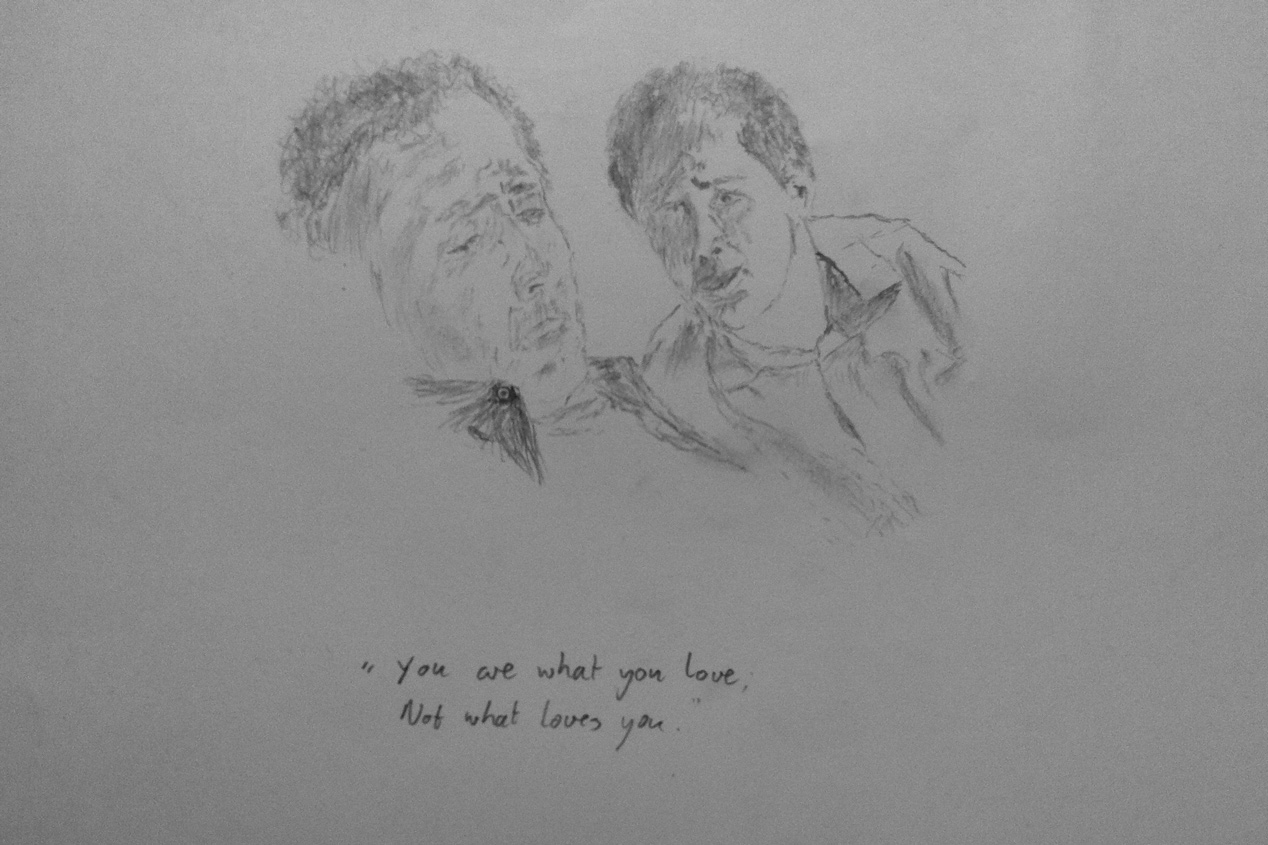 " You are what you love,
Not what loves you. "